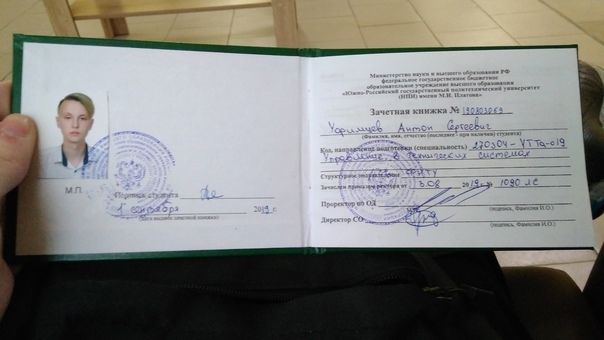 М.П.
Подпись студента
1 сентября 2019 г.
(дата выдачи зачетной книжки)
Министерство науки и высшего образования РФ
федеральное государственное бюджетное
образовательное учреждение высшего образования
«Южно-Российский государственный политехнический университет
(НПИ) имени М.И. Платова»
Зачетная книжка №
Антон Сергеевич
(Фамилия, имя, отчество (последнее - при наличии) студента)
Код, направление подготовки (специальность) 270304-УТТа-о19
Управление в технических системах
Структурное подразделение ФИТУ
Зачислен приказом ректора от .08 2019 № 1090 ЛС
Проректор по ОД
(подпись, Фамилия И.О.)
Директор СО
(подпись, Фамилия И.О.)